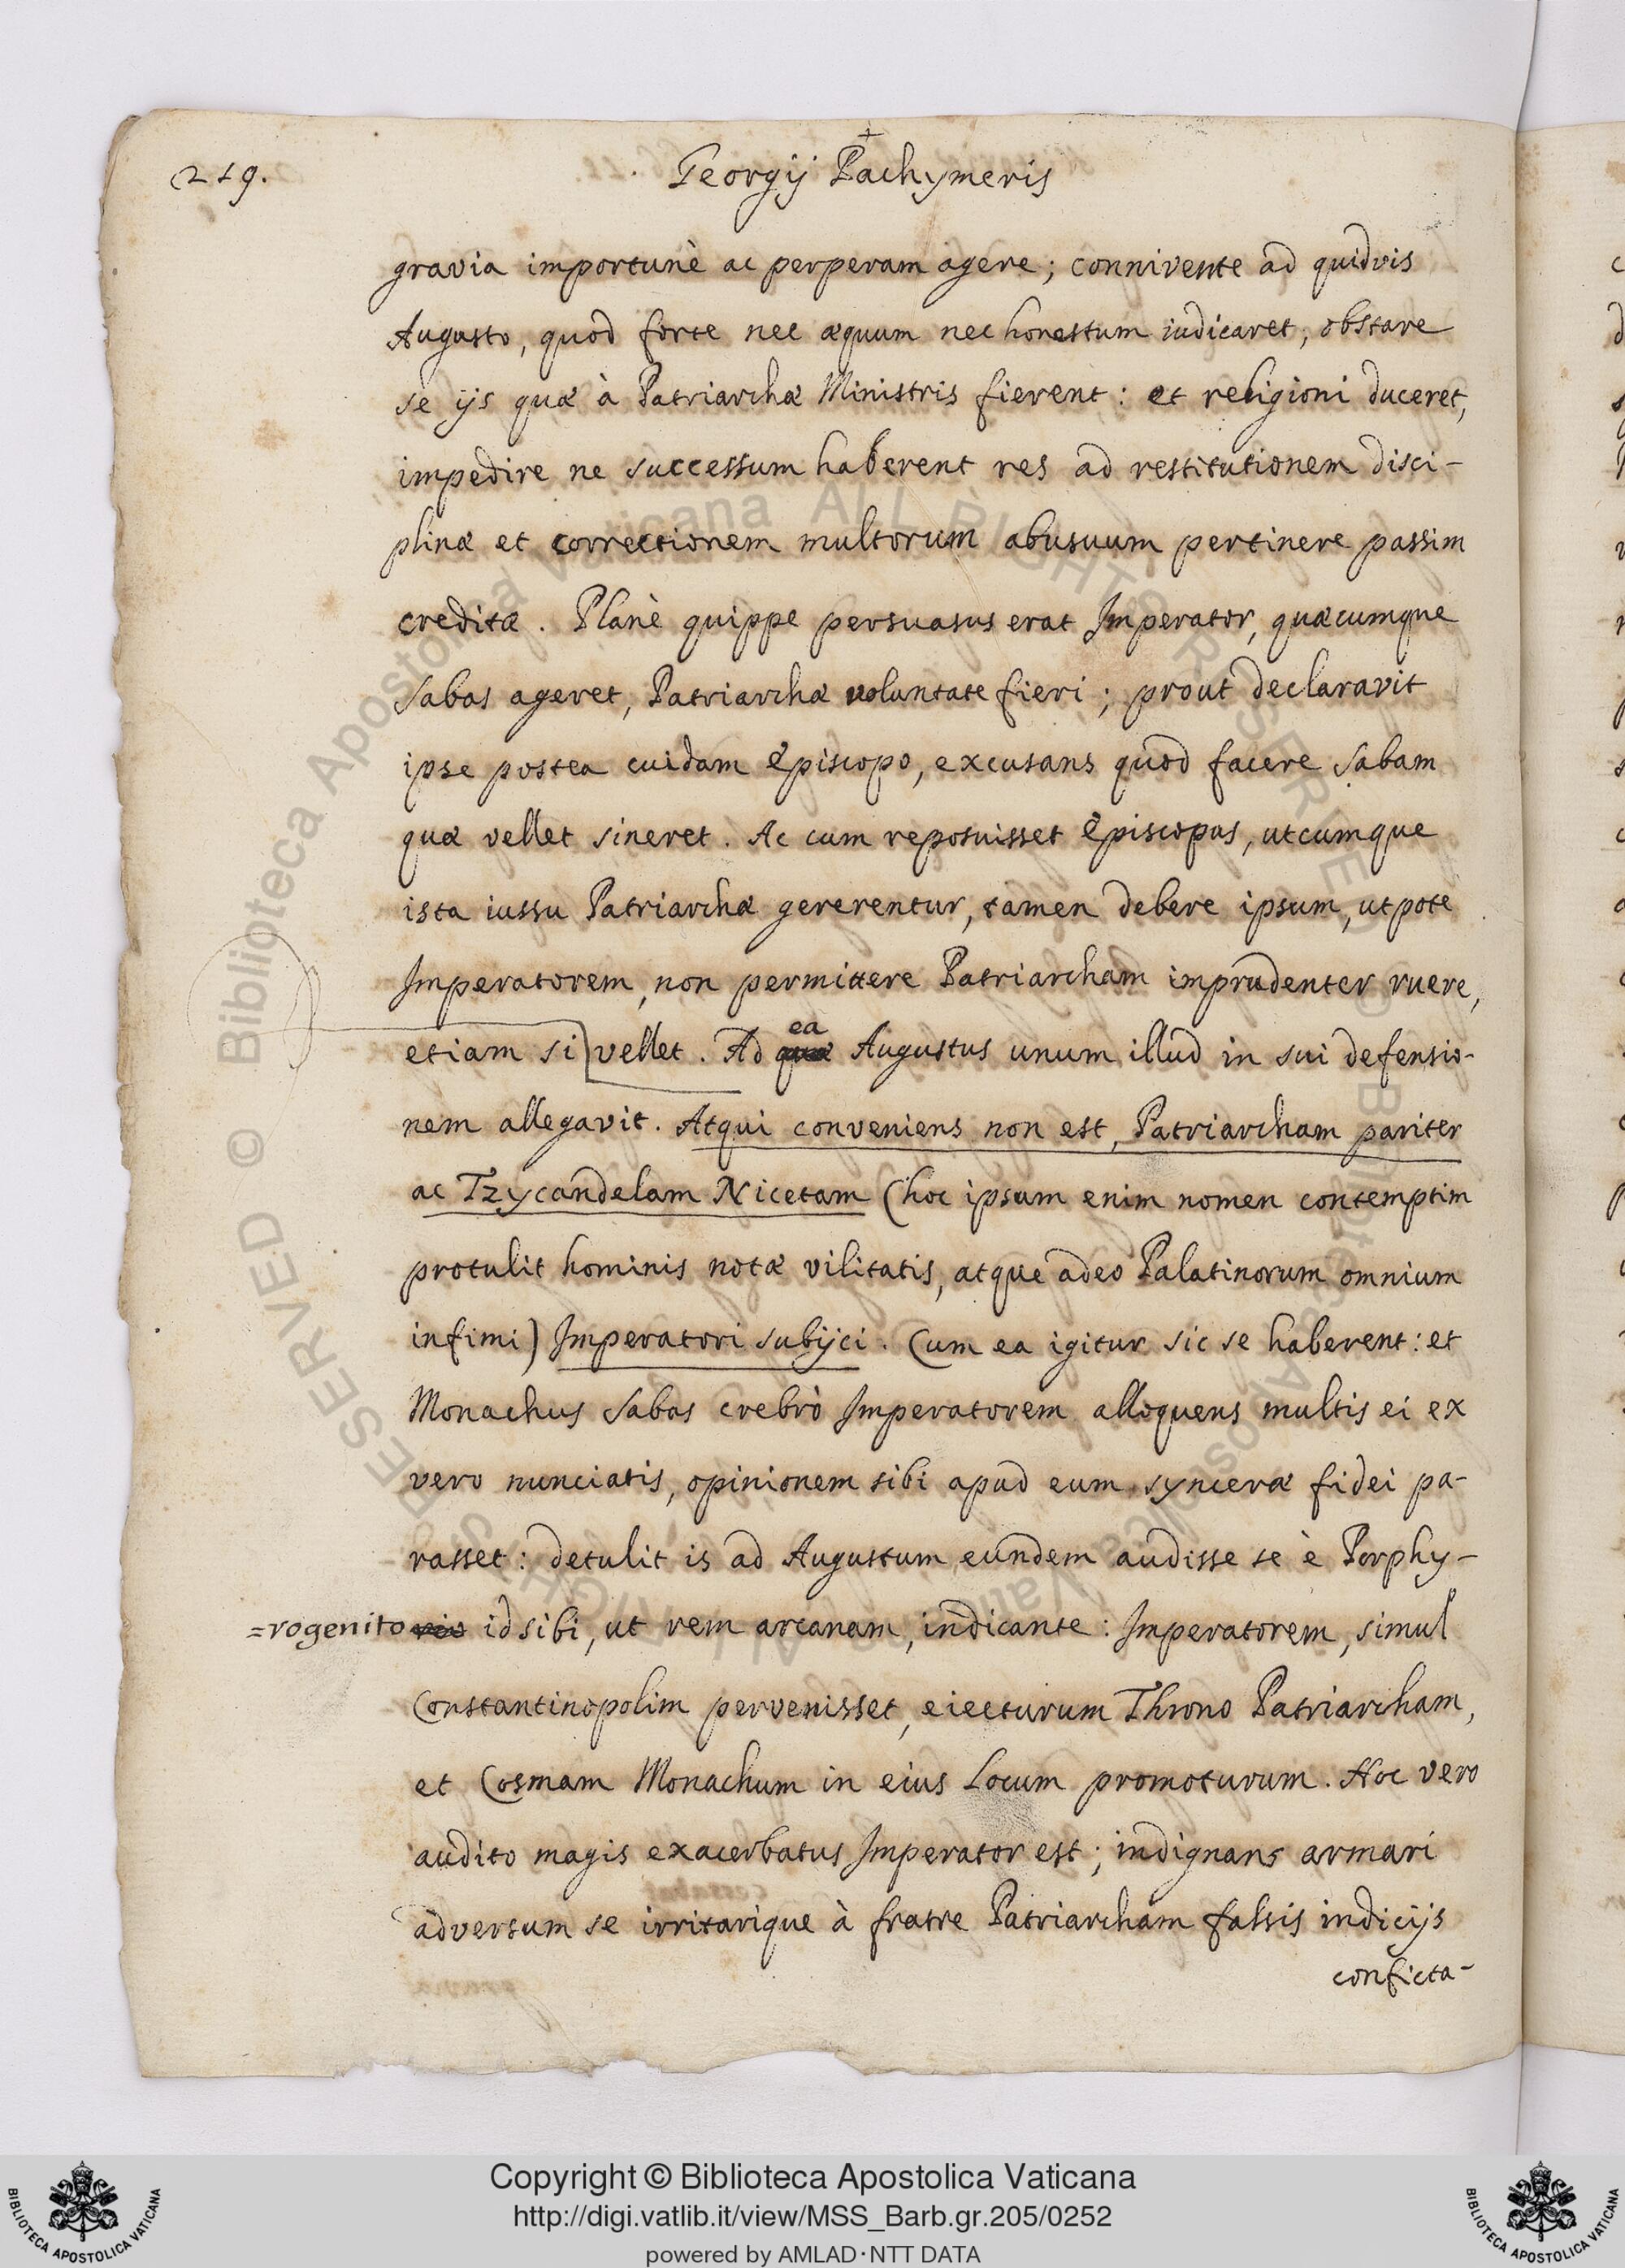 219.
Georgij Pachymeris
gravia importunè ac perperam agere; connivente ad quidvis
Augusto, quod forte nec æquum nec honestum iudicaret, obstare
se ijs quæ à Patriarchæ Ministris fierent: et religioni duceret,
impedire ne successum haberent res ad restitutionem disci-
plinæ et correctionem multorum abusuum pertinere passim
creditæ. Planè quippe persuasus erat Imperator, quæcumque
Sabas ageret, Patriarchæ voluntate fieri; prout declaravit
ipse postea cuidam Episcopo, excusans quod facere Sabam
quæ vellet sineret. Ac cum reposuisset Episcopus, utcumque
ista iussu Patriarchæ gererentur, tamen debere ipsum, utpote
Imperatorem, non permittere Patriarcham imprudenter ruere,
etiam si vellet. Ad quæ ea Augustus unum illud in sui defensio-
nem allegavit. Atqui conveniens non est, Patriarcham pariter
ac Tzycandelam Nicetam (hoc ipsum enim nomen contemptim
protulit hominis notæ vilitatis, atque adeo Palatinorum omnium
infimi) Imperatori subijci. Cum ea igitur sic se haberent: et
Monachus Sabas crebrò Imperatorem alloquens multis ei ex
vero nunciatis, opinionem sibi apud eum synceræ fidei pa-
rasset: detulit is ad Augustum eundem audisse se è Porphy-
=rogenito id sibi, ut rem arcanam, indicante: Imperatorem, simul
Constantinopolim pervenisset, eiecturum Throno Patriarcham,
et Cosmam Monachum in eius Locum promoturum. Hoc vero
audito magis exacerbatus Imperator est; indignans armari
adversum se irritarique à fratre Patriarcham falsis indicijs
conficta-
© Biblioteca Apostolica Vaticana ALL RIGHTS RESERVED
Copyright © Biblioteca Apostolica Vaticana
http://digi.vatlib.it/view/MSS_Barb.gr.205/0252
powered by AMLAD·NTT DATA
BIBLIOTECA APOSTOLICA VATICANA
BIBLIOTECA APOSTOLICA VATICANA